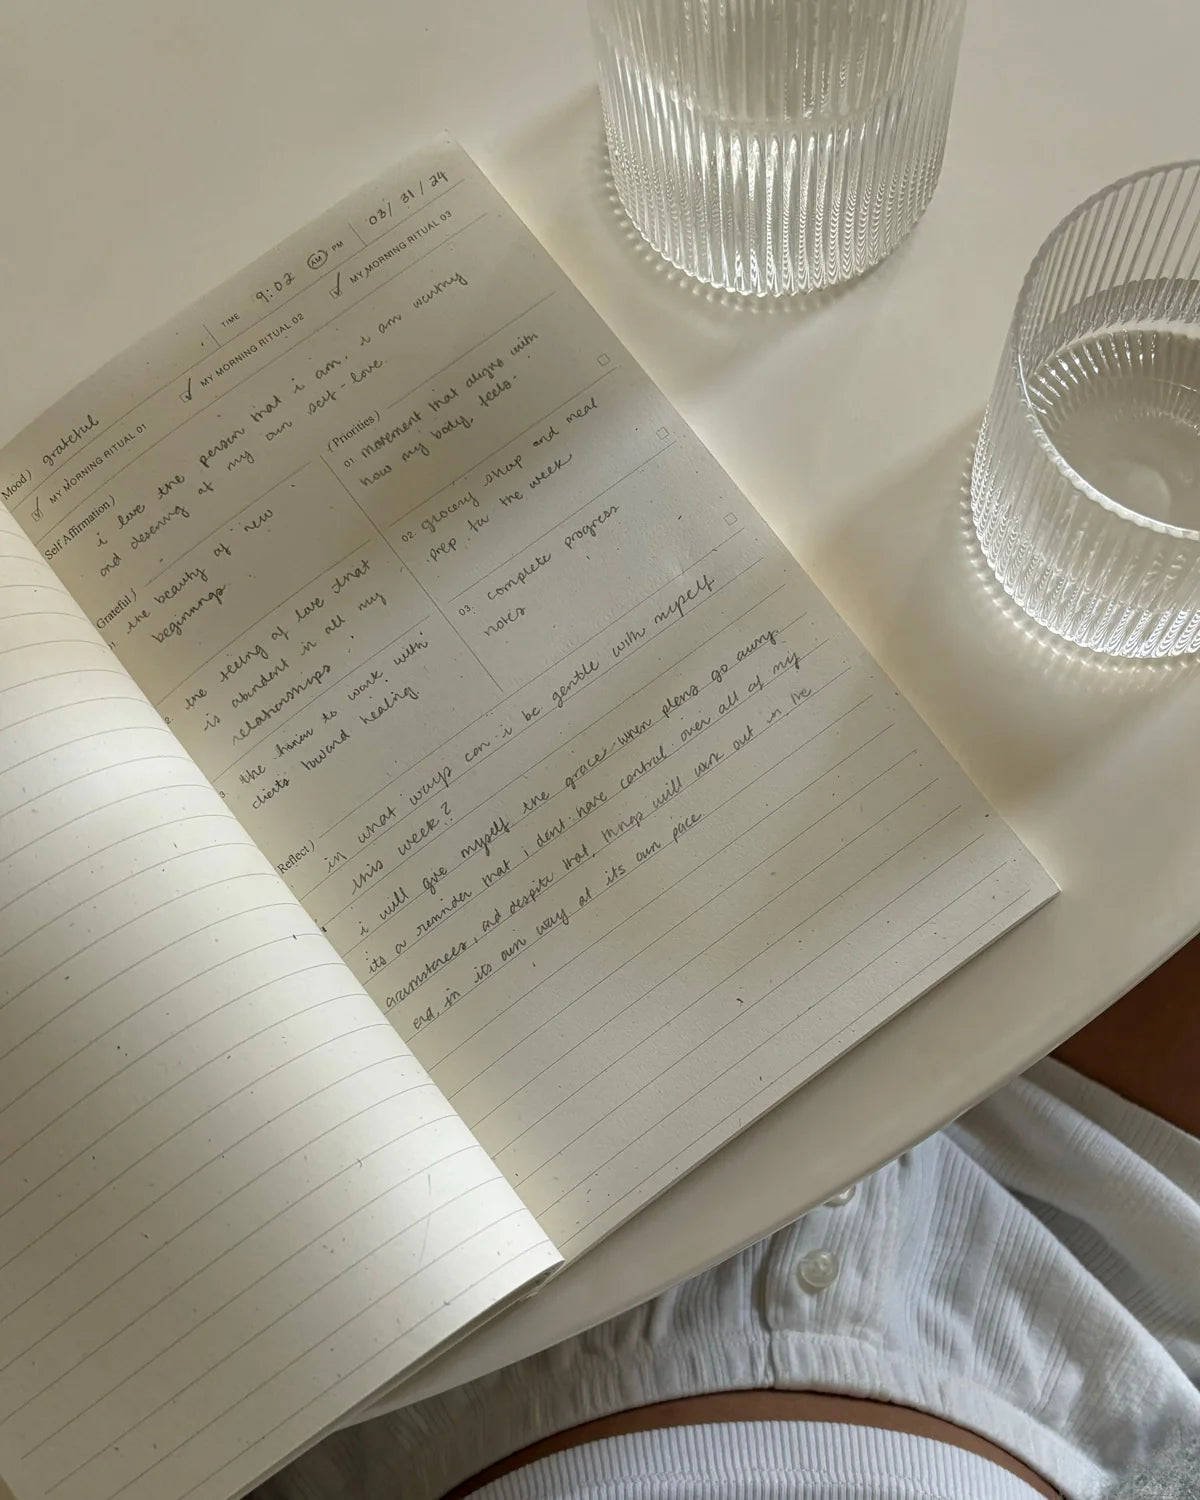 TIME 9:02 AM PM 03/31/24
Mood) grateful
MY MORNING RITUAL 01 MY MORNING RITUAL 02 MY MORNING RITUAL 03
Self Affirmation)
i love the person that i am. i am worthy
and deserving of my own self-love.
Grateful)
1. the beauty of new
beginnings
2. the feeling of love that
is abundant in all my
relationships
3. the honor to work with
clients toward healing
(Priorities)
01. movement that aligns with
how my body feels.
02. grocery shop and meal
prep for the week
03. complete progress
notes
Reflect)
in what ways can i be gentle with myself
this week?
i will give myself the grace when plans go awry.
its a reminder that i dont have control over all of my
circumstances, and despite that, things will work out in the
end, in its own way at its own pace.